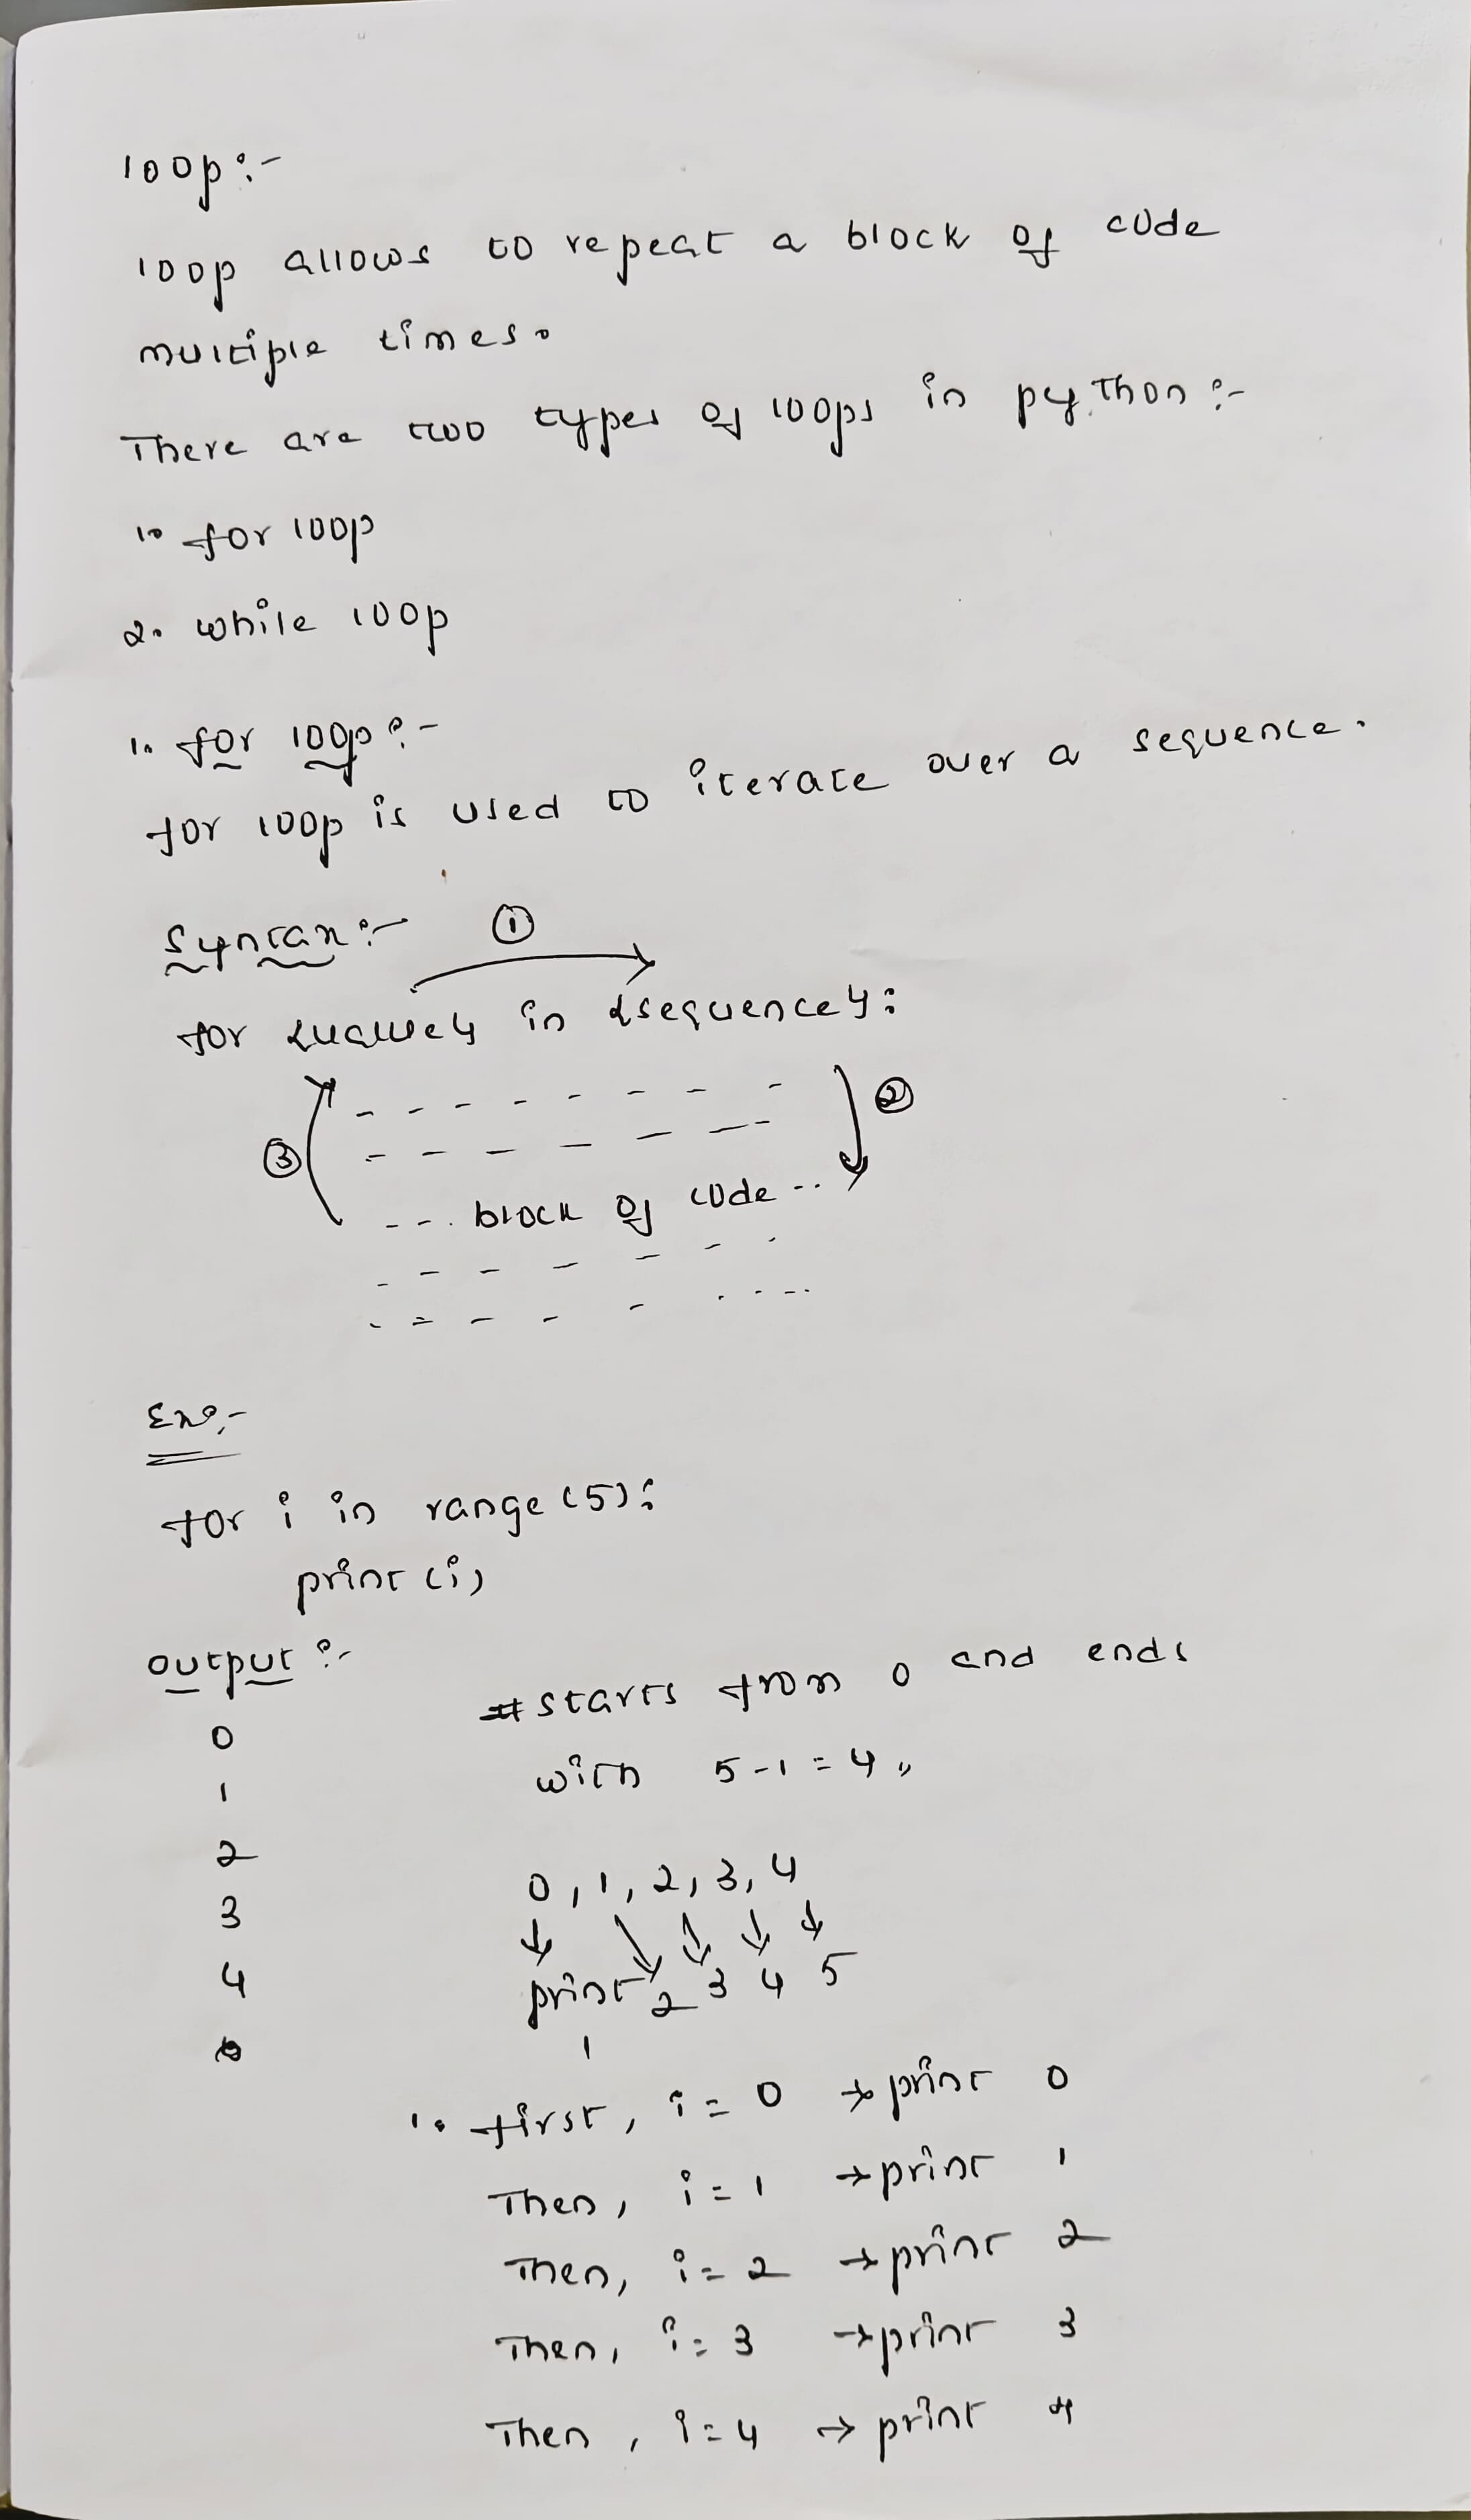 loop:-
loop allows to repeat a block of code
multiple times.
There are two types of loops in python:-
1. for loop
2. while loop
1. for loop:-
for loop is used to iterate over a sequence.
Syntax:- ①
for {value} in {sequence}:
②
③
--. block of code ..
Ex:-
for i in range(5):
print(i)
output:-
#starts from 0 and ends
0
with 5-1=4,,
1
2
0, 1, 2, 3, 4
3
4
print 2 3 4 5
1
1. first, i=0 → print 0
Then, i=1 → print 1
Then, i=2 → print 2
Then, i=3 → print 3
Then, i=4 → print 4